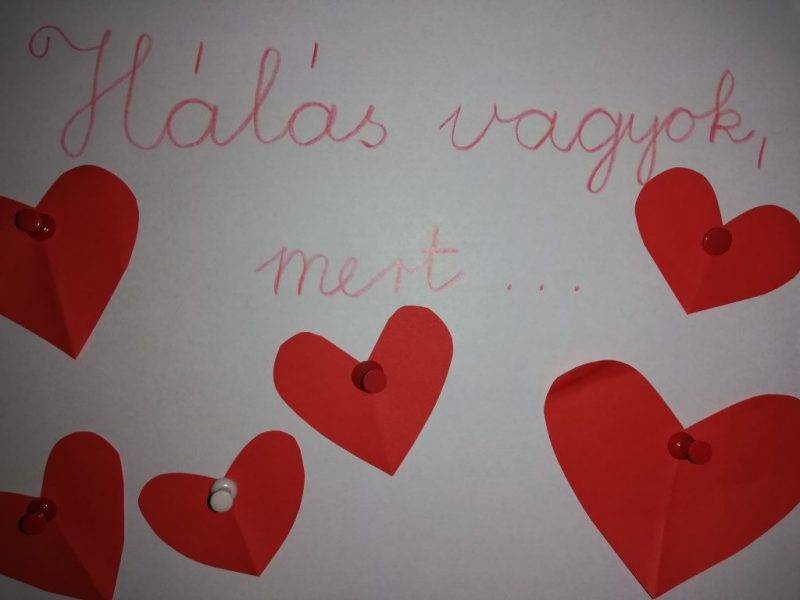 Hálás vagyok,
mert ...